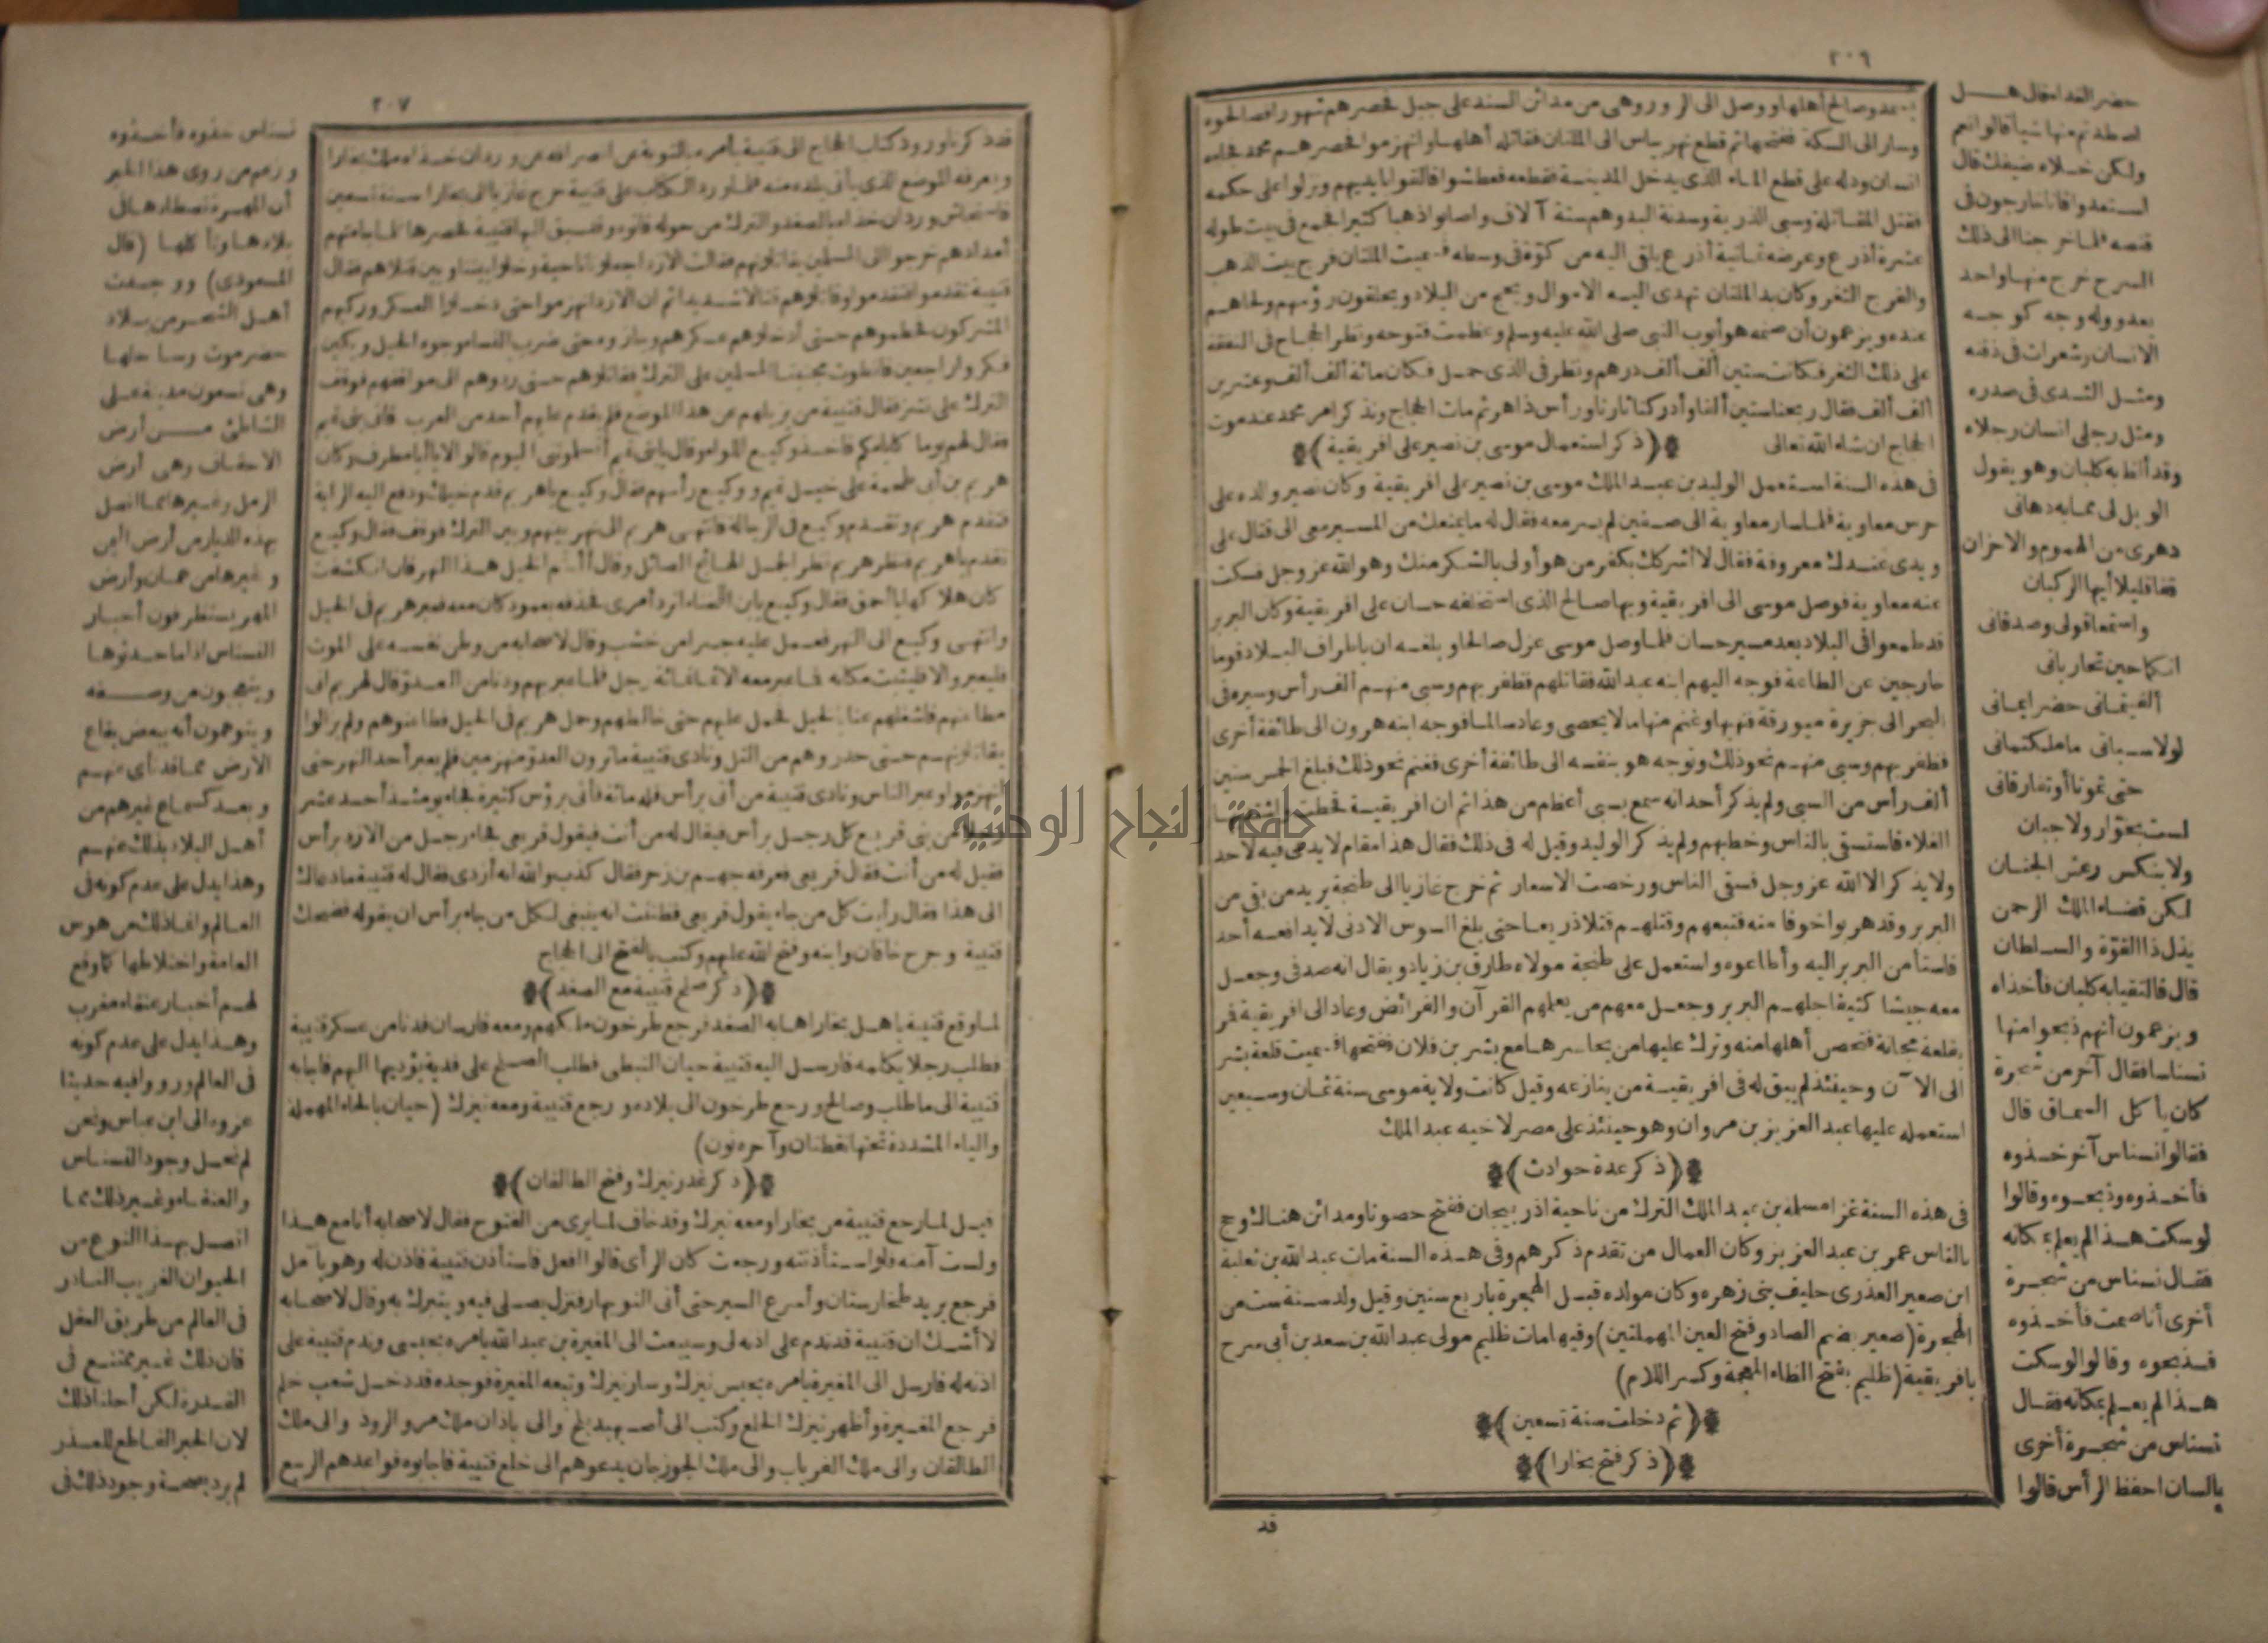 ٢٠٦
بغدوصالح أهلها ووصل الى الرور وهى من مدائن السند على جبل فحصرهم شهورا فصالحوه
وسار الى السكة ففتحها ثم قطع نهر بياس الى الملتان فقاتله أهلها وانهزموا فحصرهم محمد فجاءه
انسان ودله على قطع الماء الذى يدخل المدينة فقطعه فعطشوا فالقوا بايديهم ونزلوا على حكمه
فقتل المقاتلة وسبى الذرية وسدنة البد وهم ستة آلاف وأصابوا ذهبا كثيرا فجمع فى بيت طوله
عشرة أذرع وعرضه ثمانية أذرع يلقى اليه من كوّة فى وسطه فسميت الملتان فرج بيت الذهب
والفرج الثغر وكان بد الملتان تهدى اليه الاموال ويحج من البلاد ويحلقون رؤسهم ولحاهم
عنده ويزعمون أن صنمه هو أيوب النبى صلى الله عليه وسلم وعظمت فتوحه ونظر الحجاج فى النفقة
على ذلك الثغر فكانت ستين ألف ألف درهم ونظر فى الذى حمل فكان مائة ألف ألف وعشرين
ألف ألف فقال ربحنا ستين ألفا وأدركنا ثارنا ورأس ذاهر ثم مات الحجاج ونذكر امر محمد عند موت
الحجاج ان شاء الله تعالى ﴿ذكر استعمال موسى بن نصير على افريقية﴾
فى هذه السنة استعمل الوليد بن عبد الملك موسى بن نصير على افريقية وكان نصير والده على
حرس معاوية فلما سار معاوية الى صفين لم يسر معه فقال له ما يمنعك من المسير معى الى قتال على
ويدى عندك معروفة فقال لا أشركك بكفر من هو أولى بالشكر منك وهو الله عز وجل فسكت
عنه معاوية فوصل موسى الى افريقية وبها صالح الذى استخلفه حسان على افريقية وكان البربر
قد طمعوا فى البلاد بعد مسير حسان فلما وصل موسى عزل صالحا وبلغه ان باطراف البلاد قوما
خارجين عن الطاعة فوجه اليهم ابنه عبد الله فقاتلهم فظفر بهم وسبى منهم ألف رأس وسيره فى
البحر الى جزيرة ميورقة فنهبها وغنم منها ما لا يحصى وعاد سالما فوجه ابنه هرون الى طائفة أخرى
فظفر بهم وسبى منهم نحو ذلك وتوجه هو بنفسه الى طائفة أخرى فغنم نحو ذلك فبلغ الخمس ستين
ألف رأس من السبى ولم يذكر أحد انه سمع بسبى أعظم من هذا ثم ان افريقية قحطت
الغلاء فاستسقى بالناس وخطبهم ولم يذكر الوليد وقيل له فى ذلك فقال هذا مقام لا يدعى فيه لاحد
ولا يذكر الا الله عز وجل فسقى الناس ورخصت الاسعار ثم خرج غازيا الى طنجة يريد من بقى من
البربر وقد هربوا خوفا منه فتبعهم وقتلهم قتلا ذريعا حتى بلغ السوس الادنى لا يدافعه أحد
فاستأمن البربر اليه وأطاعوه واستعمل على طنجة مولاه طارق بن زياد ويقال انه صدفى وجعل
معه جيشا كثيفا جلهم البربر وجعل معهم من يعلمهم القرآن والفرائض وعاد الى افريقية فمر
بقلعة مجانة فتحصن أهلها منه وترك عليها من يحاسرها مع بشر بن فلان ففتحها فسميت قلعة بشر
الى الآن وحينئذ لم يبق له فى افريقية من ينازعه وقيل كانت ولاية موسى سنة ثمان وسبعين
استعمله عليها عبد العزيز بن مروان وهو حينئذ على مصر لاخيه عبد الملك
﴿ذكر عدة حوادث﴾
فى هذه السنة غزا مسلمة بن عبد الملك الترك من ناحية اذربيجان ففتح حصونا ومدائن هناك وحج
بالناس عمر بن عبد العزيز وكان العمال من تقدم ذكرهم وفى هذه السنة مات عبد الله بن ثعلبة
ابن صعير العذرى حليف بنى زهره وكان مولده قبل الهجرة باربع سنين وقيل ولد سنة ست من
الهجرة (صعير بضم الصاد وفتح العين المهملتين) وفيها مات ظليم مولى عبد الله بن سعد بن أبى سرح
بافريقية (ظليم بفتح الظاء المعجمة وكسر اللام)
﴿ثم دخلت سنة تسعين﴾
﴿ذكر فتح بخارا﴾
قد
حضر الغداء قال هل
اصطدتم منها شيأ قالوا نعم
ولكن خلاه ضيفك قال
استعدوا فانا خارجون فى
قنصه فلما خرجنا الى ذلك
السرح خرج منها واحد
يعدو وله وجه كوجه
الانسان وشعرات فى ذقنه
ومثل الثدى فى صدره
ومثل رجلى انسان رجلاه
وقد ألظ به كلبان وهو يقول
الويل لى مما به دهانى
دهرى من الهموم والاحزان
قفا قليلا أيها الكلبان
واستمعا قولى وصدقانى
انكما حين تحاربانى
ألفيتمانى حضرا يمانى
لولا سباتى ما ملكتمانى
حتى تموتا أو تفارقانى
لست بخوّار ولا جبان
ولا بنكس رعش الجنان
لكن قضاء الملك الرحمن
يذل ذا القوّة والسلطان
قال فالتقيا به كلبان فأخذاه
ويزعمون أنهم ذبحوا منها
نسناسا فقال آخر من شجرة
كان يأكل السماق قال
فقالوا نسناس آخر خذوه
فأخذوه وذبحوه وقالوا
لو سكت هذا لم يعلم بمكانه
فقال نسناس من شجرة
أخرى أنا صمت فأخذوه
فذبحوه وقالوا لو سكت
هذا لم يعلم بمكانه فقال
نسناس من شجرة أخرى
يا لسان احفظ الرأس قالوا
٢٠٧
قد ذكرنا ورود كتاب الحجاج الى قتيبة يأمره بالتوبة عن انصرافه عن وردان خذاه ملك بخارا
ويعرفه الموضع الذى يأتى بلده منه فلما ورد الكتاب على قتيبة خرج غازيا الى بخارا سنة تسعين
فاستجاش وردان خذاه بالصغد والترك من حوله فاتوه وقد سبق اليها قتيبة فحصرها فلما جاءتهم
أمدادهم خرجوا الى المسلمين يقاتلونهم فقالت الازد اجعلونا ناحية وخلوا بيننا وبين قتالهم فقال
قتيبة تقدموا فتقدموا وقاتلوهم قتالا شديدا ثم ان الازد انهزموا حتى دخلوا العسكر وركبهم
المشركون فحطموهم حتى أدخلوهم عسكرهم وجازوه حتى ضرب النساء وجوه الخيل وبكين
فكروا راجعين فانطوت مجنبتا المسلمين على الترك فقاتلوهم حتى ردوهم الى مواقفهم فوقف
الترك على نشز فقال قتيبة من يزيلهم عن هذا الموضع فلم يقدم عليهم أحد من العرب فاتى بنى تميم
فقال لهم يوما كايامكم فاخذ وكيع اللواء وقال يا بنى تميم أتسلموننى اليوم قالوا لا يا أبا مطرف وكان
هريم بن أبى طحمة على خيل تميم ووكيع رأسهم فقال وكيع يا هريم قدم خيلك ودفع اليه الراية
فتقدم هريم وتقدم وكيع فى الرجالة فانتهى هريم الى نهر بينهم وبين الترك فوقف فقال وكيع
تقدم يا هريم فنظر هريم نظر الجمل الهائج الصائل وقال أأقحم الخيل هذا النهر فان انكشفت
كان هلاكها يا أحمق فقال وكيع يا ابن اللخناء أترد أمرى فحذفه بعمود كان معه فعبر هريم فى الخيل
وانتهى وكيع الى النهر فعمل عليه جسرا من خشب وقال لاصحابه من وطن نفسه على الموت
فليعبر والا فليثبت مكانه فما عبر معه الا ثمانمائة رجل فلما عبر بهم ودنا من العدوّ قال لهريم انى
مطاعنهم فاشغلهم عنا بالخيل فحمل عليهم حتى خالطهم وحمل هريم فى الخيل فطاعنوهم ولم يزالوا
يقاتلونهم حتى حدروهم من التل ونادى قتيبة ما ترون العدوّ منهزمين فلم يعبر أحد النهر حتى
انهزموا وعبر الناس ونادى قتيبة من أتى برأس فله مائة فأتى برؤس كثيرة فجاء يومئذ أحد عشر
من بنى قريع كل رجل برأس فيقال له من أنت فيقول قريعى فجاء رجل من الازد برأس
فقيل له من أنت فقال قريعى فعرفه جهم بن زحر فقال كذب والله انه أزدى فقال له قتيبة ما دعاك
الى هذا فقال رأيت كل من جاء يقول قريعى فظننت انه ينبغى لكل من جاء برأس ان يقوله فضحك
قتيبة وجرح خاقان وابنه وفتح الله عليهم وكتب بالفتح الى الحجاج
﴿ذكر صلح قتيبة مع الصغد﴾
لما وقع قتيبة باهل بخارا هابه الصغد فرجع طرخون ملكهم ومعه فارسان فدنا من عسكر قتيبة
فطلب رجلا يكلمه فارسل اليه قتيبة حيان النبطى فطلب الصلح على فدية يؤديها اليهم فاجابه
قتيبة الى ما طلب وصالح ورجع طرخون الى بلاده ورجع قتيبة ومعه نيزك (حيان بالحاء المهملة
والياء المشددة تحتها نقطتان وآخره نون)
﴿ذكر غدر نيزك وفتح الطالقان﴾
قيل لما رجع قتيبة من بخارا ومعه نيزك وقد خاف لما يرى من الفتوح فقال لاصحابه أنا مع هذا
ولست آمنه فلو استأذنته ورجعت كان الرأى قالوا افعل فاستأذن قتيبة فاذن له وهو بآمل
فرجع يريد طخارستان وأسرع السير حتى أتى النوبهار فنزل يصلى فيه ويتبرك به وقال لاصحابه
لا أشك ان قتيبة قد ندم على اذنه لى وسيبعث الى المغيرة بن عبد الله يأمره بحبسى وندم قتيبة على
اذنه له فارسل الى المغيرة يامره بحبس نيزك وسار نيزك وتبعه المغيرة فوجده قد دخل شعب خلم
فرجع المغيرة وأظهر نيزك الخلع وكتب الى أصبهبذ بلخ والى باذان ملك مرو الروذ والى ملك
الطالقان والى ملك الفرياب والى ملك الجوزجان يدعوهم الى خلع قتيبة فاجابوه فواعدهم الربيع
نسناس خذوه فأخذوه
وزعم من روى هذا الخبر
أن المهرة تصطادها فى
بلادها وتأكلها (قال
المسعودى) ووجدت
أهل الشحر من بلاد
حضرموت وساحلها
وهى تسعون مدينة على
الشاطئ من أرض
الاحقاف وهى أرض
الرمل وغيرها مما اتصل
بهذه الديار من أرض اليمن
وغيرها من عمان وأرض
المهر يستظرفون أخبار
النسناس اذا ما حدثوا بها
ويتعجبون من وصفه
ويتوهمون أنه ببعض بقاع
الارض مما قد نأى عنهم
وبعد كسماع غيرهم من
أهل البلاد بذلك عنهم
وهذا يدل على عدم كونه فى
العالم وانما ذلك من هوس
العامة واختلاطها كما وقع
لهم أخبار عنقاء مغرب
وهذا يدل على عدم كونه
فى العالم ورووا فيه حديثا
عزوه الى ابن عباس ونحن
لم نحل وجود النسناس
والعنقاء وغير ذلك مما
اتصل بهذا النوع من
الحيوان الغريب النادر
فى العالم من طريق العقل
فان ذلك غير ممتنع فى
القدرة لكن أحلنا ذلك
لان الخبر القاطع للعذر
لم يرد بصحة وجود ذلك فى
جامعة النجاح الوطنية